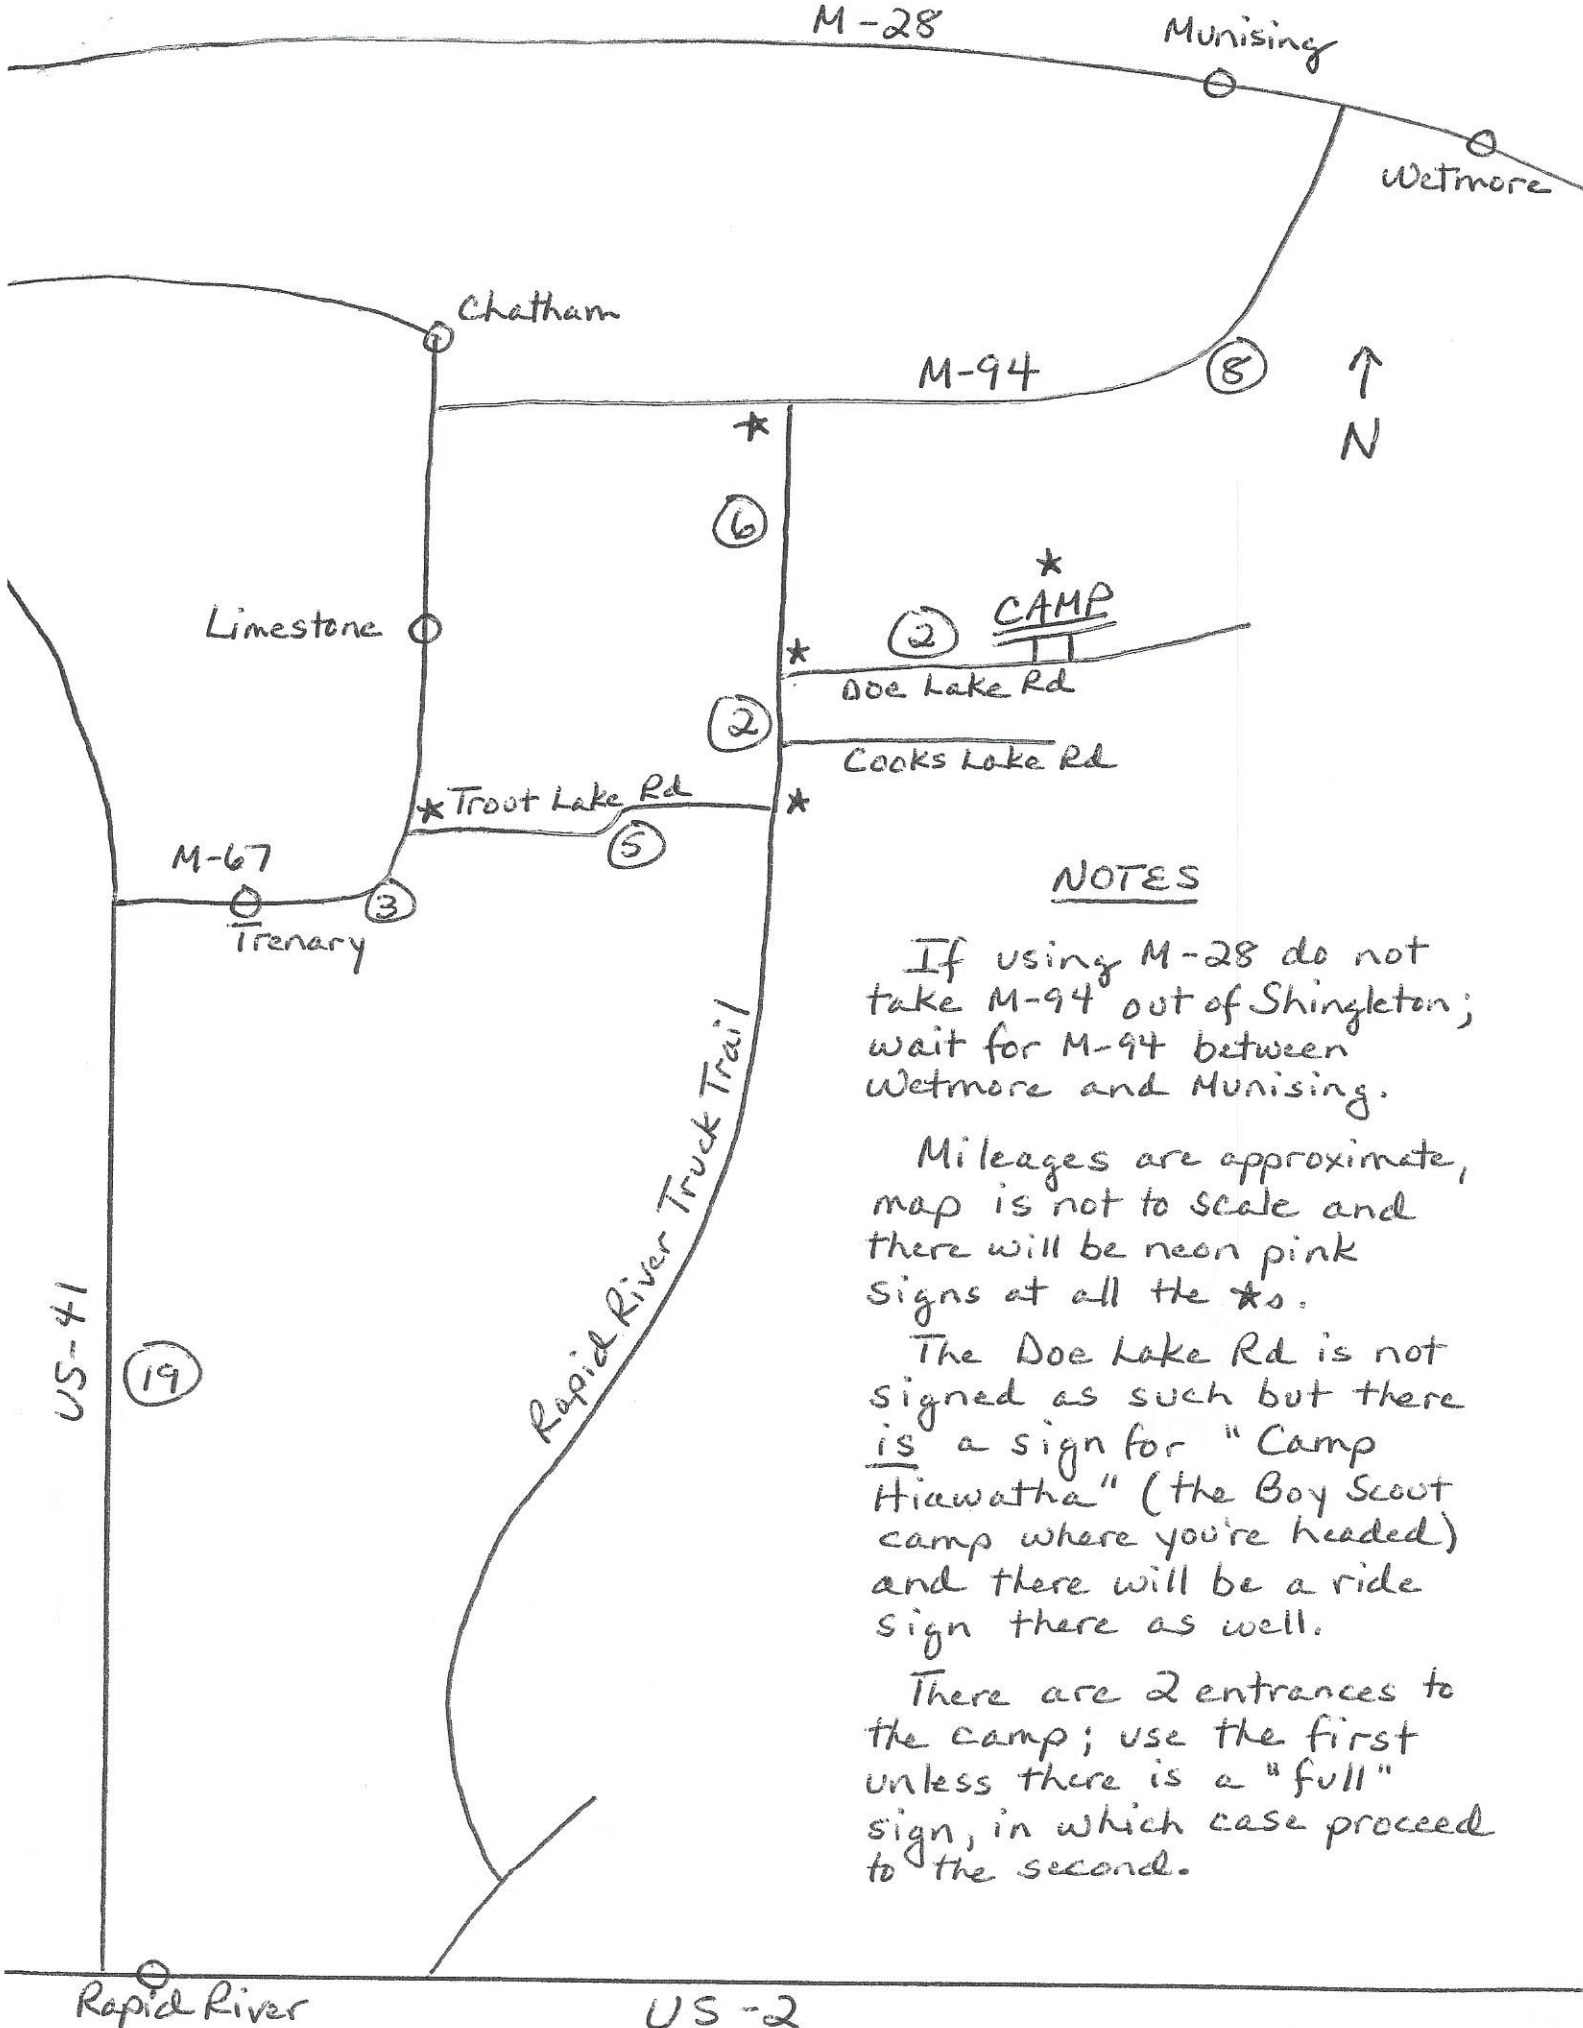 M-28
Munising
Wetmore
Chatham
M-94
8
N
★
6
★
CAMP
Limestone
2
★
Doe Lake Rd
2
Cooks Lake Rd
★ Trout Lake Rd
★
5
M-67
3
Trenary
NOTES
If using M-28 do not
take M-94 out of Shingleton;
wait for M-94 between
Wetmore and Munising.
Mileages are approximate,
map is not to scale and
there will be neon pink
signs at all the ★s.
The Doe Lake Rd is not
signed as such but there
is a sign for "Camp
Hiawatha" (the Boy Scout
camp where you're headed)
and there will be a ride
sign there as well.
There are 2 entrances to
the camp; use the first
unless there is a "full"
sign, in which case proceed
to the second.
Rapid River Truck Trail
US-41
19
Rapid River
US-2